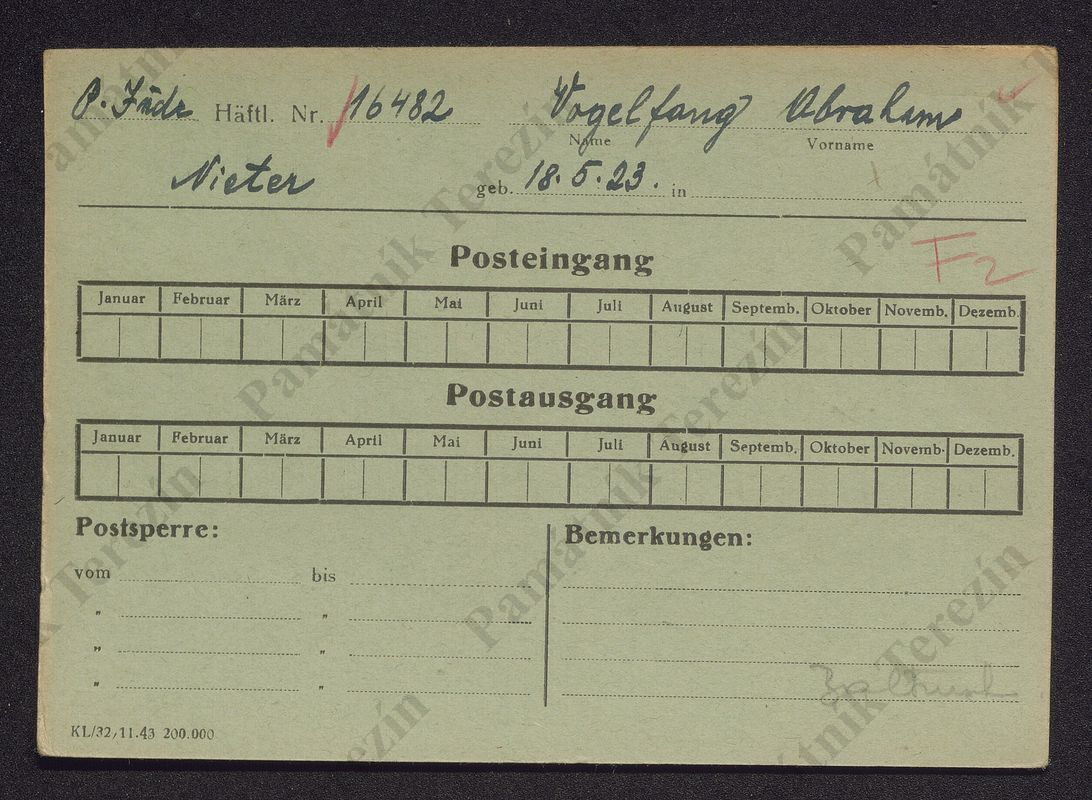 P. Jude Häftl. Nr. 16482 Vogelfang Abraham
Name Vorname
Nieter geb. 18.5.23. in
F2
Posteingang
Januar Februar März April Mai Juni Juli August Septemb. Oktober Novemb. Dezemb.
Postausgang
Januar Februar März April Mai Juni Juli August Septemb. Oktober Novemb. Dezemb.
Postsperre: Bemerkungen:
vom bis
" "
" "
" "
KL/32, 11.43 200.000
Památník Terezín